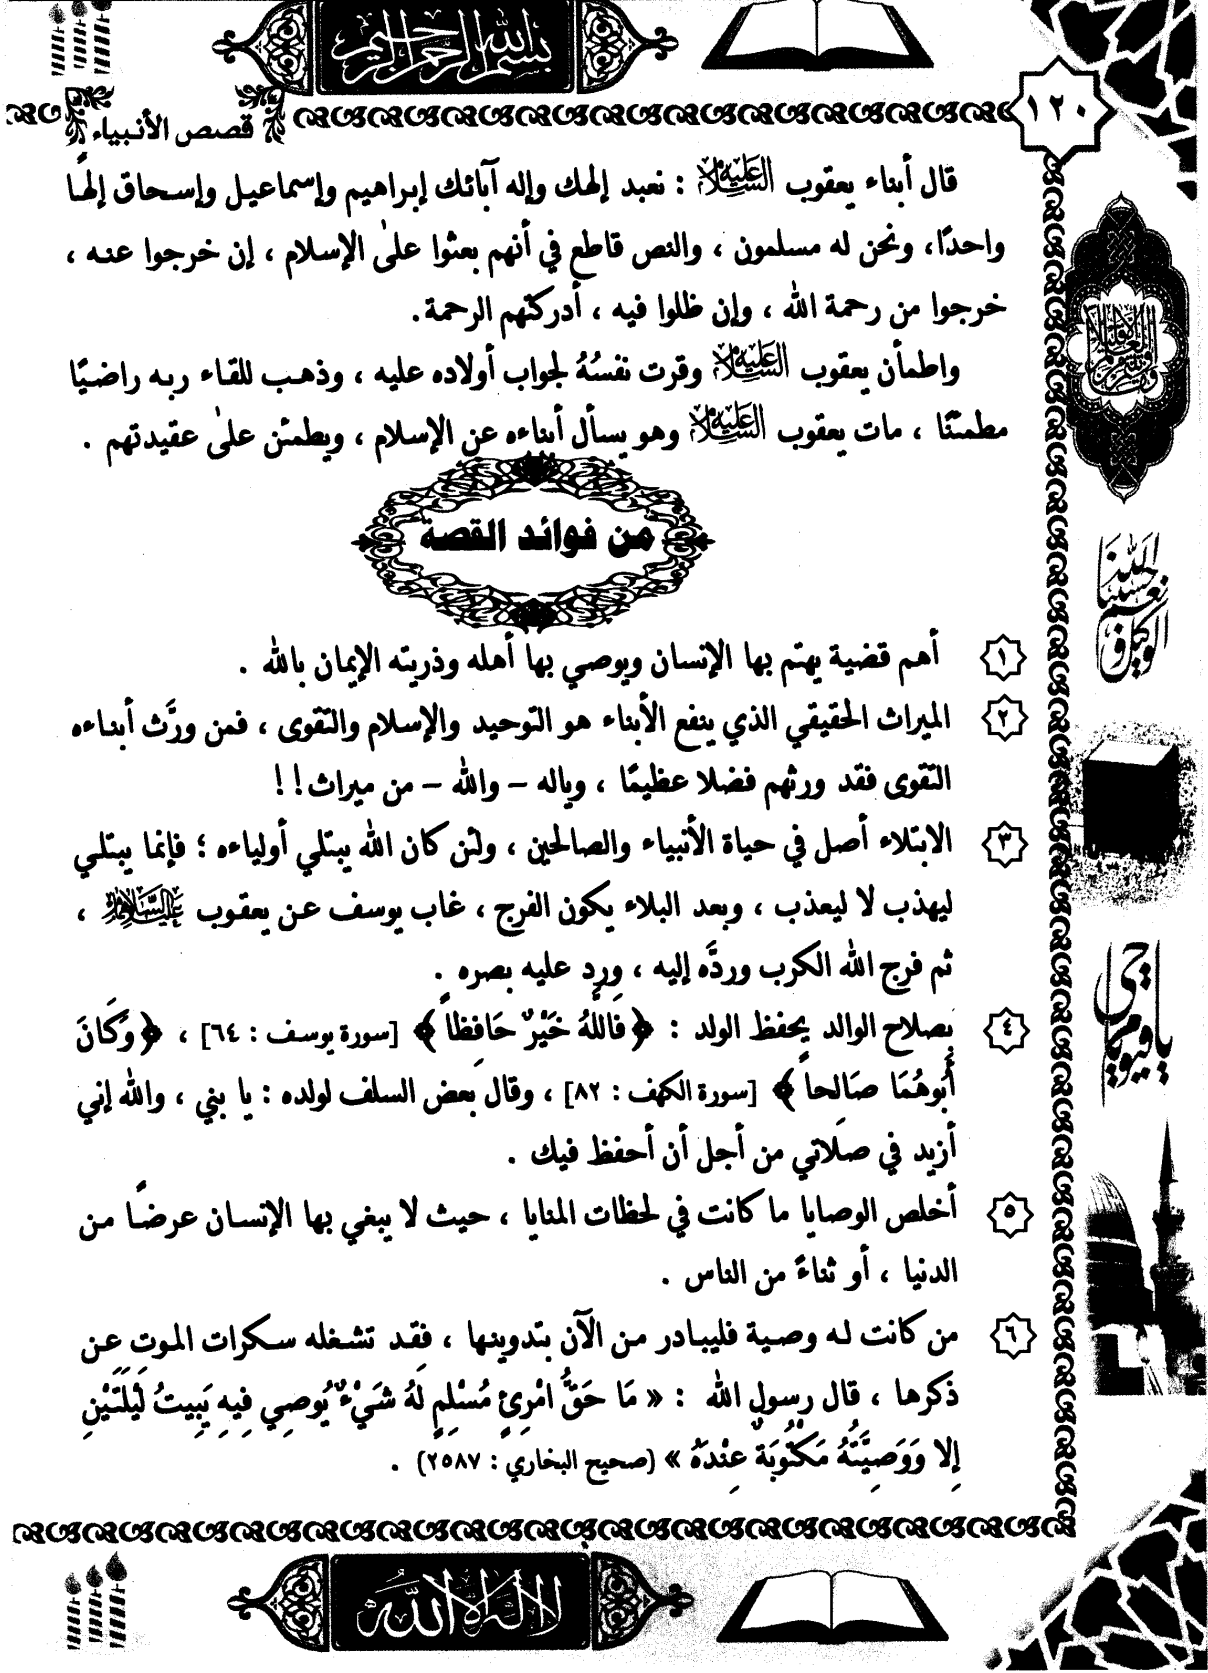 بسم الله الرحمن الرحيم
١٢٠
قصص الأنبياء
قال أبناء يعقوب عليه السلام : نعبد إلهك وإله آبائك إبراهيم وإسماعيل وإسحاق إلهًا
واحدًا، ونحن له مسلمون ، والنص قاطع في أنهم بعثوا على الإسلام ، إن خرجوا عنه ،
خرجوا من رحمة الله ، وإن ظلوا فيه ، أدركتهم الرحمة.
واطمأن يعقوب عليه السلام وقرت نفسُهُ لجواب أولاده عليه ، وذهب للقاء ربه راضيًا
مطمئنًا ، مات يعقوب عليه السلام وهو يسأل أبناءه عن الإسلام ، ويطمئن على عقيدتهم .
من فوائد القصة
١ أهم قضية يهتم بها الإنسان ويوصي بها أهله وذريته الإيمان بالله .
٢ الميراث الحقيقي الذي ينفع الأبناء هو التوحيد والإسلام والتقوى ، فمن ورَّث أبناءه
التقوى فقد ورثهم فضلا عظيمًا ، وياله – والله – من ميراث!!
٣ الابتلاء أصل في حياة الأنبياء والصالحين ، ولئن كان الله يبتلي أولياءه ؛ فإنما يبتلي
ليهذب لا ليعذب ، وبعد البلاء يكون الفرج ، غاب يوسف عن يعقوب عليه السلام ،
ثم فرج الله الكرب وردَّه إليه ، ورد عليه بصره .
٤ بصلاح الوالد يحفظ الولد : ﴿ فَاللَّهُ خَيْرٌ حَافِظاً ﴾ [سورة يوسف : ٦٤] ، ﴿ وَكَانَ
أَبُوهُمَا صَالِحاً ﴾ [سورة الكهف : ٨٢] ، وقال بعض السلف لولده : يا بني ، والله إني
أزيد في صلاتي من أجل أن أحفظ فيك .
٥ أخلص الوصايا ما كانت في لحظات المنايا ، حيث لا يبغي بها الإنسان عرضًا من
الدنيا ، أو ثناءً من الناس .
٦ من كانت له وصية فليبادر من الآن بتدوينها ، فقد تشغله سكرات الموت عن
ذكرها ، قال رسول الله : « مَا حَقُّ امْرِئٍ مُسْلِمٍ لَهُ شَيْءٌ يُوصِي فِيهِ يَبِيتُ لَيْلَتَيْنِ
إِلا وَوَصِيَّتُهُ مَكْتُوبَةٌ عِنْدَهُ » (صحيح البخاري : ٢٥٨٧) .
حسبنا الله ونعم الوكيل
يا حي يا قيوم
لا إله إلا الله